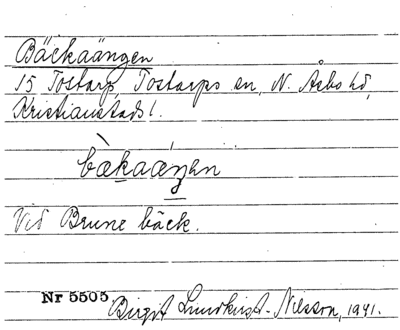 Bäckaängen
15 Tostarp, Tostarps sn, N. Åsbo hd,
Kristianstads l.
bæ̀kaǽŋen
Vid Brune bäck.
Nr 5505 Birgit Lundkvist-Nilsson, 1941.